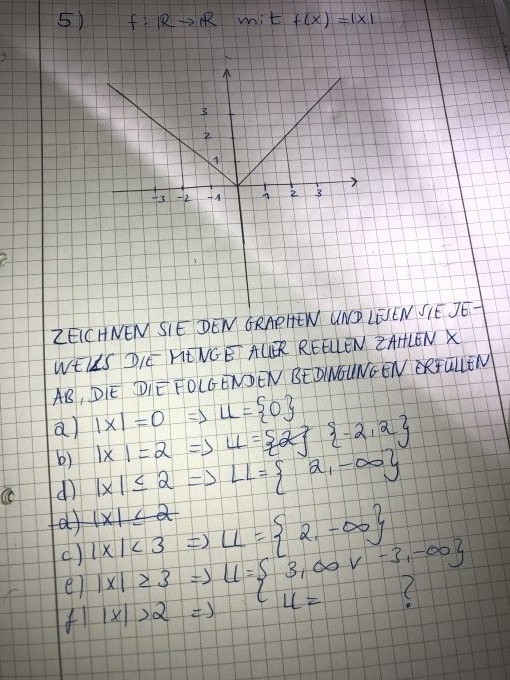 5) f: ℝ → ℝ mit f(x) = |x|
3
2
1
-3 -2 -1 1 2 3
ZEICHNEN SIE DEN GRAPHEN UND LESEN SIE JE-
WEILS DIE MENGE ALLER REELLEN ZAHLEN X
AB, DIE DIE FOLGENDEN BEDINGUNGEN ERFÜLLEN
a) |x| = 0 => LL = {0}
b) |x| = 2 => LL = {2} {-2, 2}
d) |x| ≤ 2 => LL = { 2, -∞}
d) |x| ≤ 2
c) |x| < 3 => LL = { 2, -∞}
e) |x| ≥ 3 => LL = { 3, ∞ v -3, -∞}
f) |x| > 2 => { LL = ?